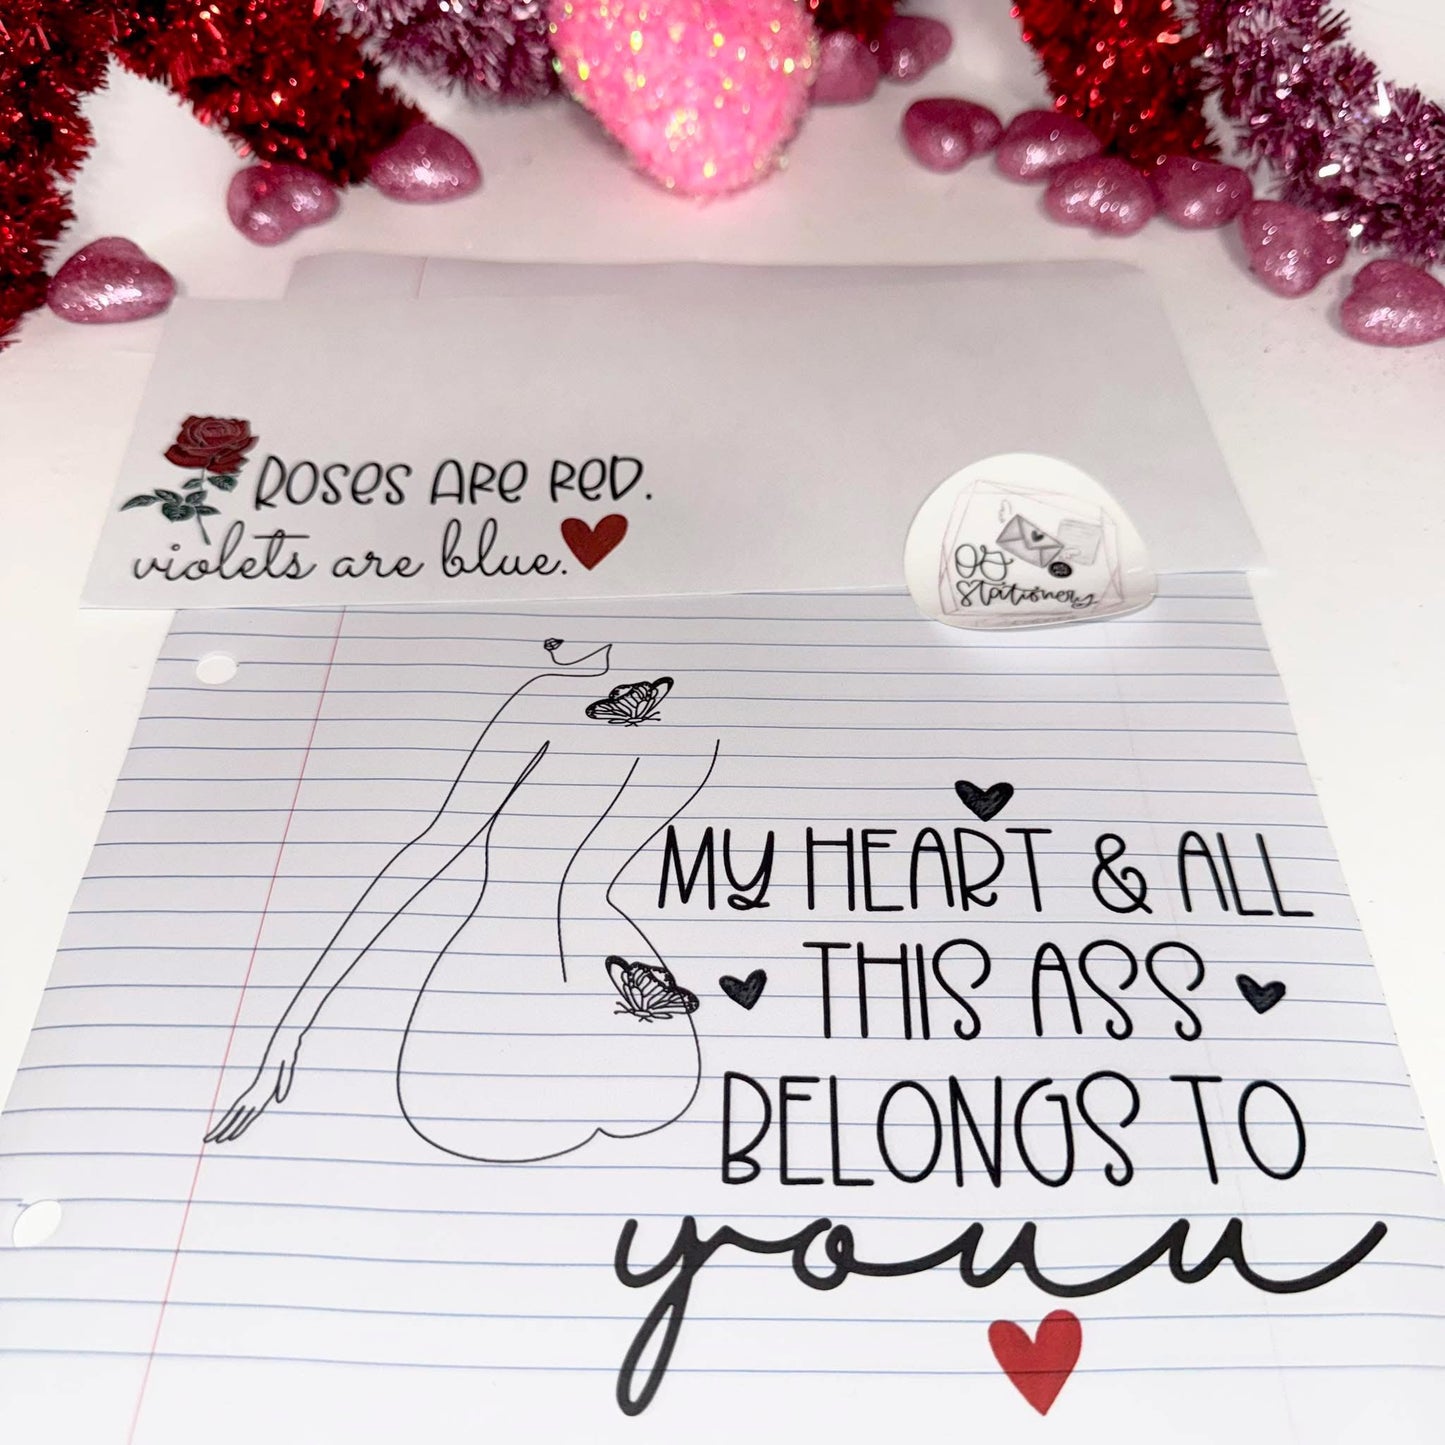 ROSES ARE RED.
violets are blue.
OS
Stationery
MY HEART & ALL
THIS ASS
BELONGS TO
youu